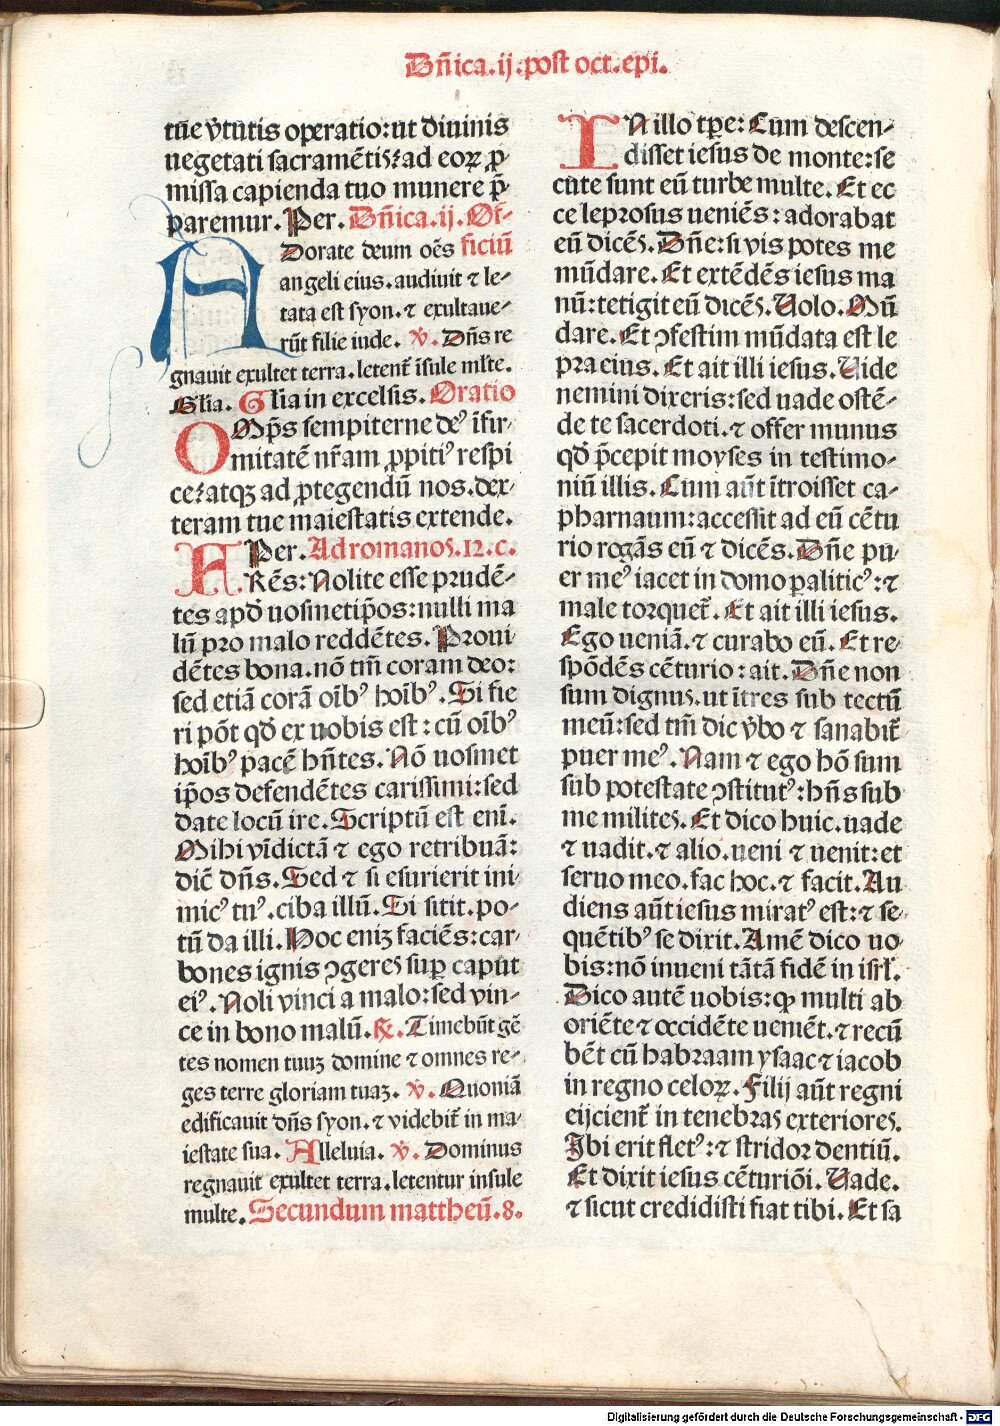 Dñica.ij.post oct.epi.
tũe v̾tutis operatio:ut diuinis
uegetati sacramẽtis:ad eoꝝ ꝓ
missa capienda tuo munere p̃
paremur. Per. Dñica.ij. Of-
Dorate deum oẽs ficiũ
angeli eius.audiuit ⁊ le-
tata est syon.⁊ exultaue-
rũt filie iude. ℣. Dñs re
gnauit exultet terra.letent᷑ ĩsule ml̃te.
Gl̃ia. Gl̃ia in excelsis. Oratio
OMp̃s sempiterne deꝰ ĩfir-
mitatẽ nr̃am ꝓpitiꝰ respi
ce:atqꝫ ad ꝓtegendũ nos.dex-
teram tue maiestatis extende.
Per. Ad romanos.12.c.
FRẽs: Nolite esse prudẽ-
tes apđ uosmetip̃os:nulli ma
lũ pro malo reddẽtes. Proui
dẽtes bona.nõ tm̃ coram deo:
sed etiã corã oĩbꝰ hoĩbꝰ. Si fie
ri põt qđ ex uobis est: cũ oĩbꝰ
hoĩbꝰ pacẽ hñtes. Nõ uosmet
ip̃os defendẽtes carissimi:sed
date locũ ire. Scriptũ est enĩ.
Mihi vĩdictã ⁊ ego retribuã:
dic̃ dñs. Sed ⁊ si esurierit ini
micꝰ tuꝰ.ciba illũ. Si sitit.po-
tũ da illi. Hoc enim faciẽs:car-
bones ignis ꝯgeres suꝑ caput
eiꝰ. Noli vinci a malo:sed vin-
ce in bono malũ. ℟. Timebũt gẽ
tes nomen tuuꝫ domine ⁊ omnes re-
ges terre gloriam tuaꝫ. ℣. Quoniã
edificauit dñs syon.⁊ videbit᷑ in ma-
iestate sua. Alleluia. ℣. Dominus
regnauit exultet terra.letentur insule
multe. Secundum mattheũ.8.
IN illo tꝑe: Cum descen-
disset iesus de monte:se
cute sunt eũ turbe multe. Et ec
ce leprosus ueniẽs:adorabat
eũ dicẽs. Dñe:si vis potes me
mũdare. Et extẽdẽs iesus ma
nũ:tetigit eũ dicẽs. Uolo. Mũ
dare. Et ꝯfestim mũdata est le
pra eius. Et ait illi iesus. Uide
nemini dixeris:sed uade ostẽ-
de te sacerdoti.⁊ offer munus
qđ p̃cepit moyses in testimo-
niũ illis. Cum aũt ĩtroisset ca-
pharnaum:accessit ad eũ cẽtu
rio rogãs eũ ⁊ dicẽs. Dñe pu-
er meꝰ iacet in domo ꝑaliticꝰ:⁊
male torquet᷑. Et ait illi iesus.
Ego ueniã.⁊ curabo eũ. Et re-
spõdẽs cẽturio:ait. Dñe non
sum dignus.ut ĩtres sub tectũ
meũ:sed tm̃ dic v̾bo ⁊ sanabit᷑
puer meꝰ. Nam ⁊ ego hõ sum
sub potestate ꝯstitutꝰ:hñs sub
me milites. Et dico huic.uade
⁊ uadit.⁊ alio.ueni ⁊ uenit:et
seruo meo.fac hoc.⁊ facit. Au
diens aũt iesus miratꝰ est:⁊ se-
quẽtibꝰ se dixit. Amẽ dico uo-
bis:nõ inueni tãtã fidẽ in isrł.
Dico autẽ uobis:ꝙ multi ab
oriẽte ⁊ occidẽte ueniẽt.⁊ recũ
bẽt cũ habraam ysaac ⁊ iacob
in regno celoꝝ. Filij aũt regni
eijcient᷑ in tenebras exteriores.
Ibi erit fletꝰ:⁊ stridor dentiũ.
Et dixit iesus cẽturiõi. Uade.
⁊ sicut credidisti fiat tibi. Et sa
Digitalisierung gefördert durch die Deutsche Forschungsgemeinschaft - DFG